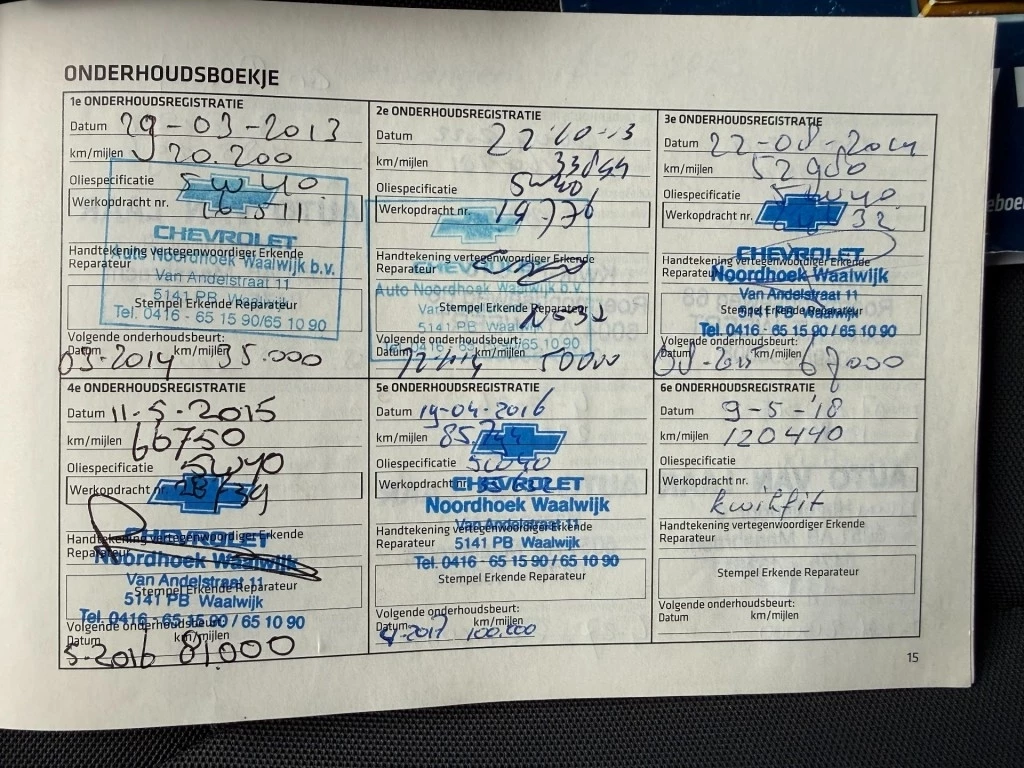 ONDERHOUDSBOEKJE
1e ONDERHOUDSREGISTRATIE
Datum 29-03-2013
km/mijlen 20.200
Oliespecificatie 5W40
Werkopdracht nr. 16511
CHEVROLET
Handtekening vertegenwoordiger Erkende
Reparateur
Auto Noordhoek Waalwijk b.v.
Van Andelstraat 11
5141 PB Waalwijk
Stempel Erkende Reparateur
Tel. 0416 - 65 15 90/65 10 90
Volgende onderhoudsbeurt:
Datum km/mijlen
03-2014 35.000
2e ONDERHOUDSREGISTRATIE
Datum 22-10-13
km/mijlen 33844
Oliespecificatie 5W40
Werkopdracht nr. 19776
CHEVROLET
Handtekening vertegenwoordiger Erkende
Reparateur
Auto Noordhoek Waalwijk b.v.
Stempel Erkende Reparateur
5141 PB Waalwijk
0416 - 65 15 90/65 10 90
Volgende onderhoudsbeurt:
Datum km/mijlen
50000
3e ONDERHOUDSREGISTRATIE
Datum 22-08-2014
km/mijlen 52980
Oliespecificatie 5W40
Werkopdracht nr. 32
CHEVROLET
Handtekening vertegenwoordiger Erkende
Reparateur
Noordhoek Waalwijk
Van Andelstraat 11
Stempel Erkende Reparateur
5141 PB Waalwijk
Tel. 0416 - 65 15 90 / 65 10 90
Volgende onderhoudsbeurt:
Datum km/mijlen
08-2015 67000
4e ONDERHOUDSREGISTRATIE
Datum 11-5-2015
km/mijlen 66750
Oliespecificatie 5W40
Werkopdracht nr.
CHEVROLET
Handtekening vertegenwoordiger Erkende
Reparateur
Noordhoek Waalwijk
Van Andelstraat 11
Stempel Erkende Reparateur
5141 PB Waalwijk
Tel. 0416 - 65 15 90 / 65 10 90
Volgende onderhoudsbeurt:
Datum km/mijlen
5-2016 81.000
5e ONDERHOUDSREGISTRATIE
Datum 19-04-2016
km/mijlen
Oliespecificatie 5W40
Werkopdracht nr.
CHEVROLET
Noordhoek Waalwijk
Van Andelstraat 11
Handtekening vertegenwoordiger Erkende
Reparateur
5141 PB Waalwijk
Tel. 0416 - 65 15 90 / 65 10 90
Stempel Erkende Reparateur
Volgende onderhoudsbeurt:
Datum km/mijlen
4-2017 100.000
6e ONDERHOUDSREGISTRATIE
Datum 9-5-'18
km/mijlen 120440
Oliespecificatie
Werkopdracht nr.
kwikfit
Handtekening vertegenwoordiger Erkende
Reparateur
Stempel Erkende Reparateur
Volgende onderhoudsbeurt:
Datum km/mijlen
15